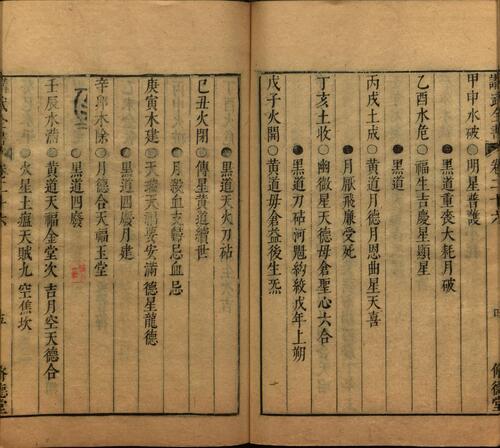 甲申水破 明星普護
黑道重喪大耗月破
乙酉水危 福生吉慶星顯星
黑道
丙戌土成 黃道月德月恩曲星天喜
月厭飛廉受死
丁亥土收 幽微星天德母倉聖心六合
黑道刀砧河魁約絞戊年上朔
戊子火開 黃道母倉益後生炁
黑道天火刀砧
己丑火閉 傳星黃道續世
月殺血支歸忌血忌
庚寅木建 天瑞天福要安滿德星龍德
黑道四廢月建
辛卯木除 月德合天福玉堂
黑道四廢
壬辰水滿 黃道天福金堂次吉月空天德合
火星土瘟天賊九空焦坎